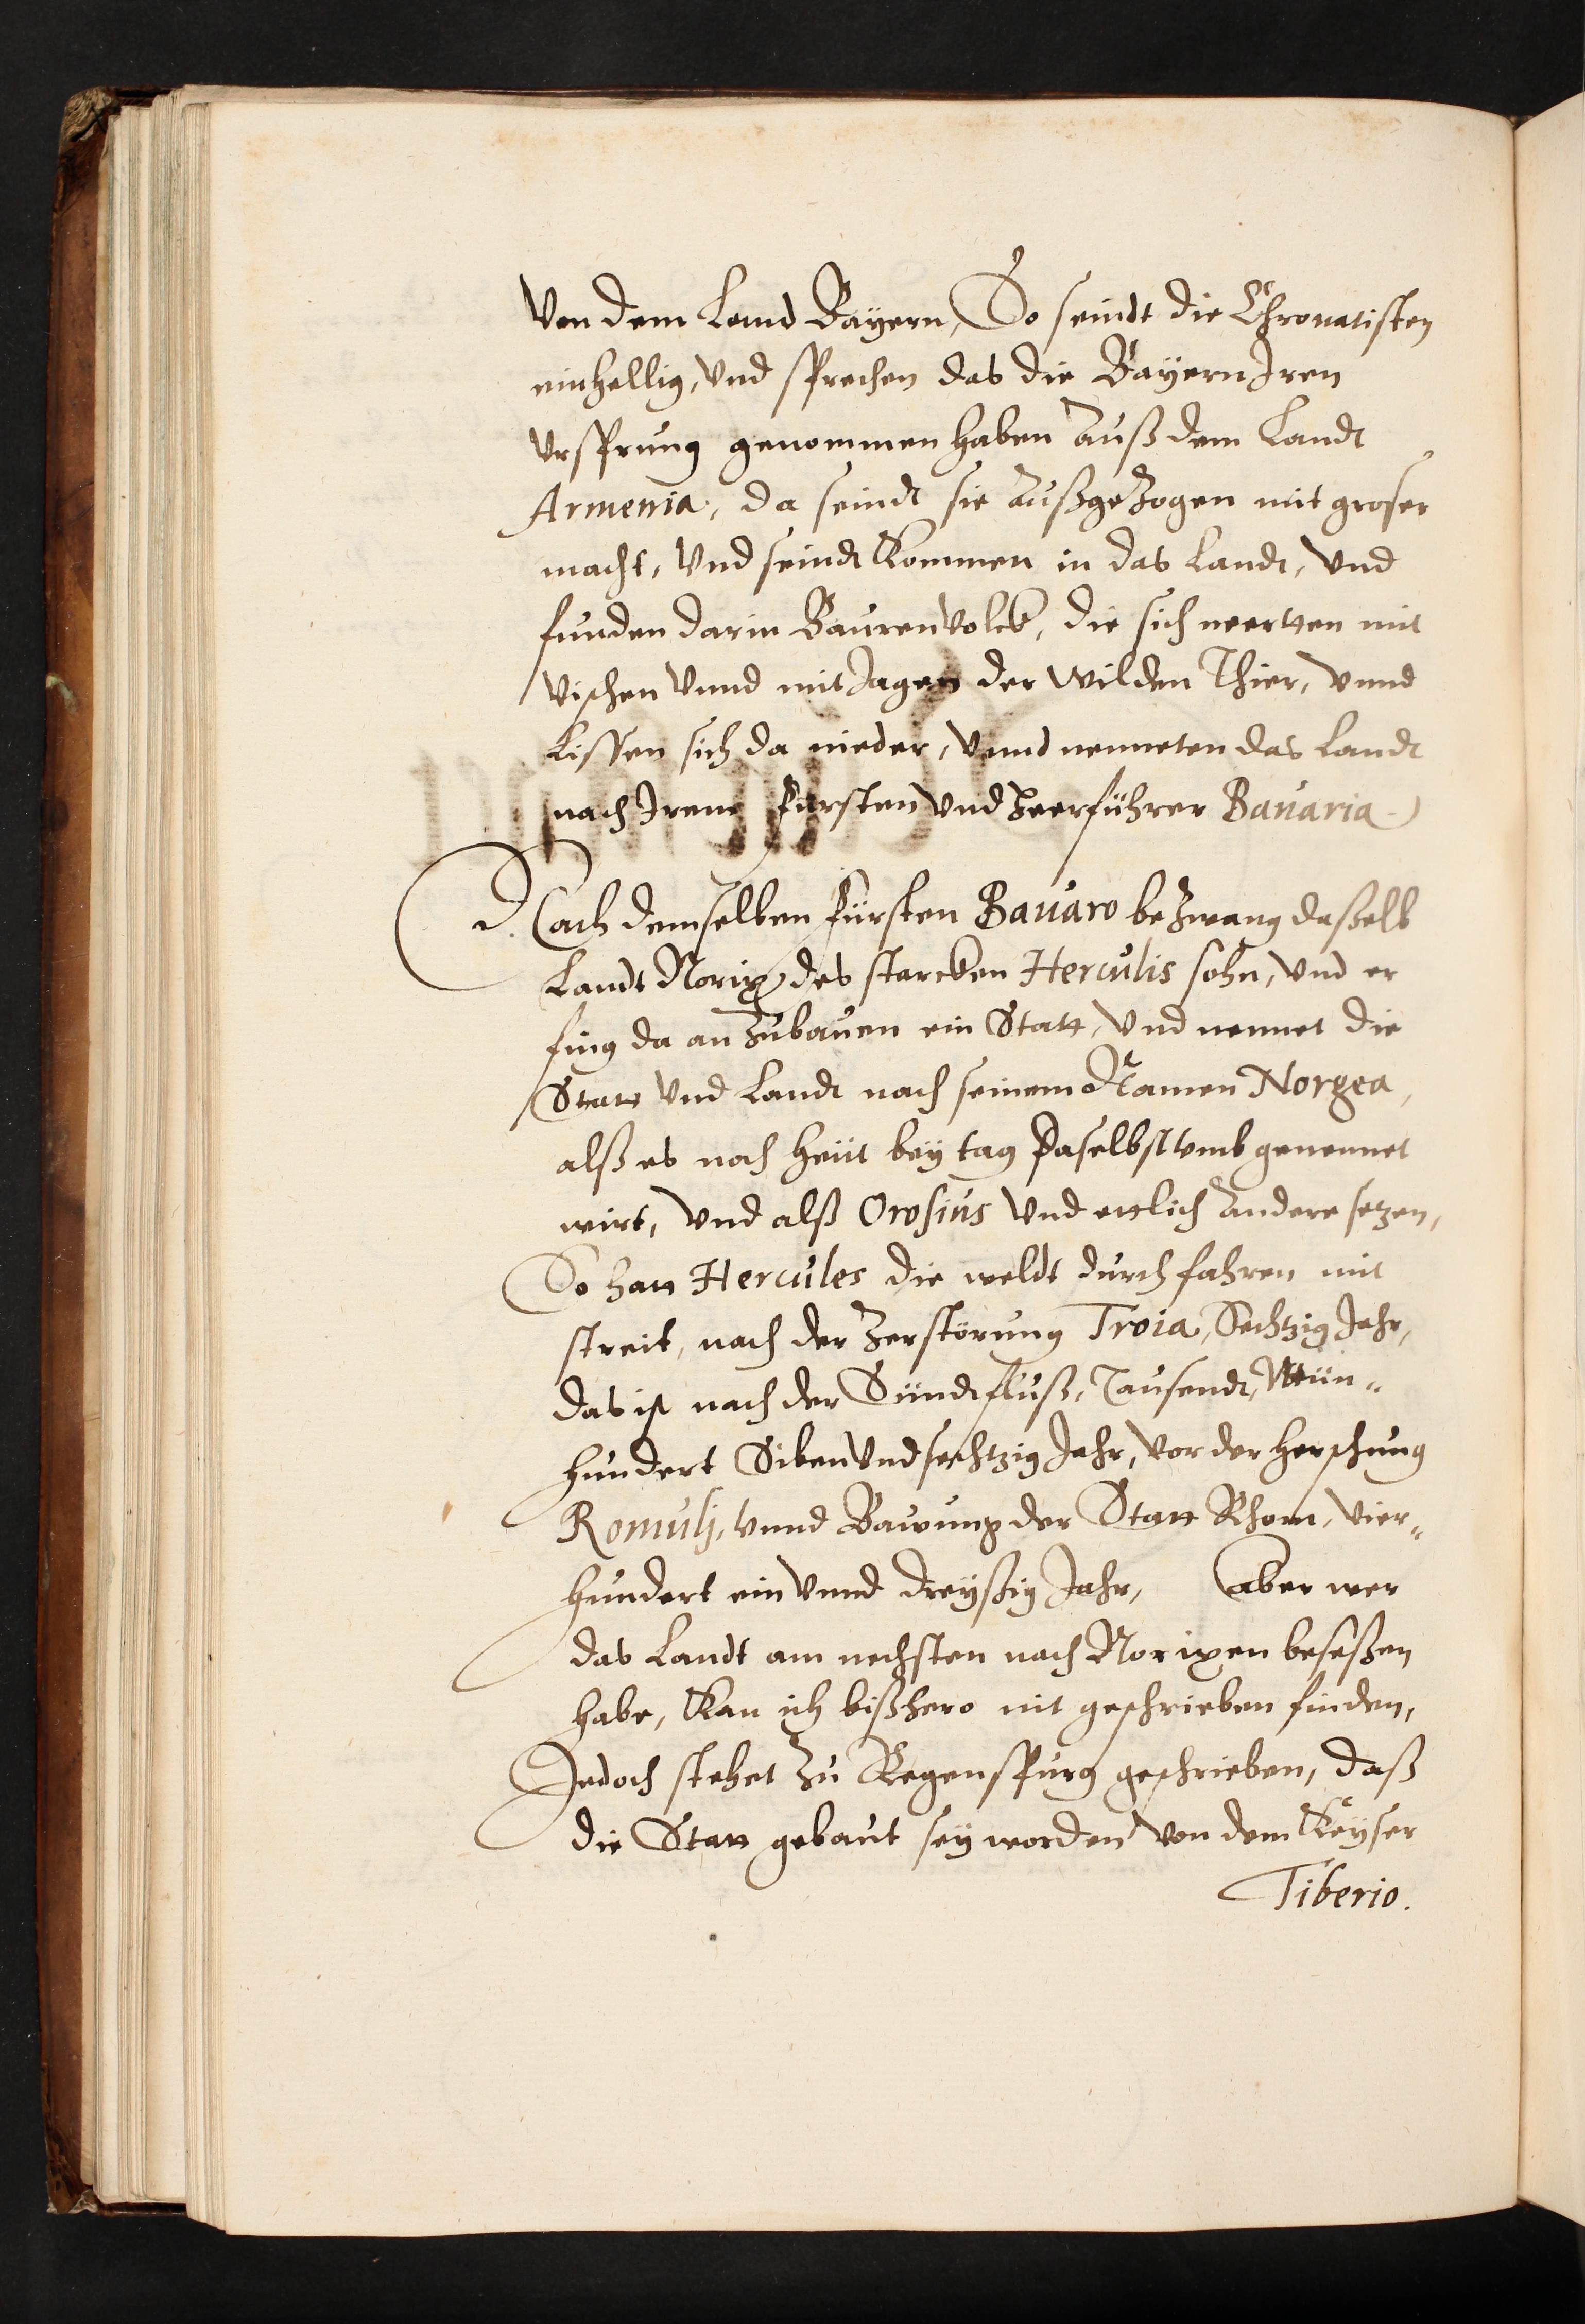 Von dem Land Bayern, So seindt die Chronatisten
einhellig, Vnd sprechen das die Bayern Iren
Vrsprung genommen haben Auß dem Landt
Armenia, da seindt sie Außgezogen mit groser
macht, Vnd seindt Kommen in das Landt, Vnd
funden darin Bauren Volck, die sich neertten mit
Vischen Vnnd mit Jagen der Wilden Thier, Vnnd
Liessen sich da nieder, Vnnd nenneten das Landt
nach Irem Fürsten Vnd Heerführer Bauaria
Nach demselben Fürsten Bauaro bezwang daßelb
Landt Norix des starcken Herculis sohn, Vnd er
fing da an Zubauen ein Statt, Vnd nennet die
Statt Vnd Landt nach seinem Namen Norgea,
alß es noch heüt bey tag Daselbst Vmb genennet
wirt, Vnd alß Orosius Vnd ettlich Andere setzen,
So hatt Hercules die weldt durchfahren mit
streit, nach der Zerstörung Troia, Sechtzig Jahr,
das ist nach der Sündtfluß, Tausendt, Neün-
hundert Siben Vnd sechtzig Jahr, Vor der herschung
Romulj, Vnnd Bawung der Statt Rhom, Vier-
hundert ein Vnnd dreyßig Jahr, Aber wer
das Landt am nechsten nach Norixen beseßen
habe, Kan ich bißhero nit geschrieben finden,
Jedoch stehet Zu Regenspurg geschrieben, daß
die Statt gebaut sey worden Von dem Keyser
Tiberio.